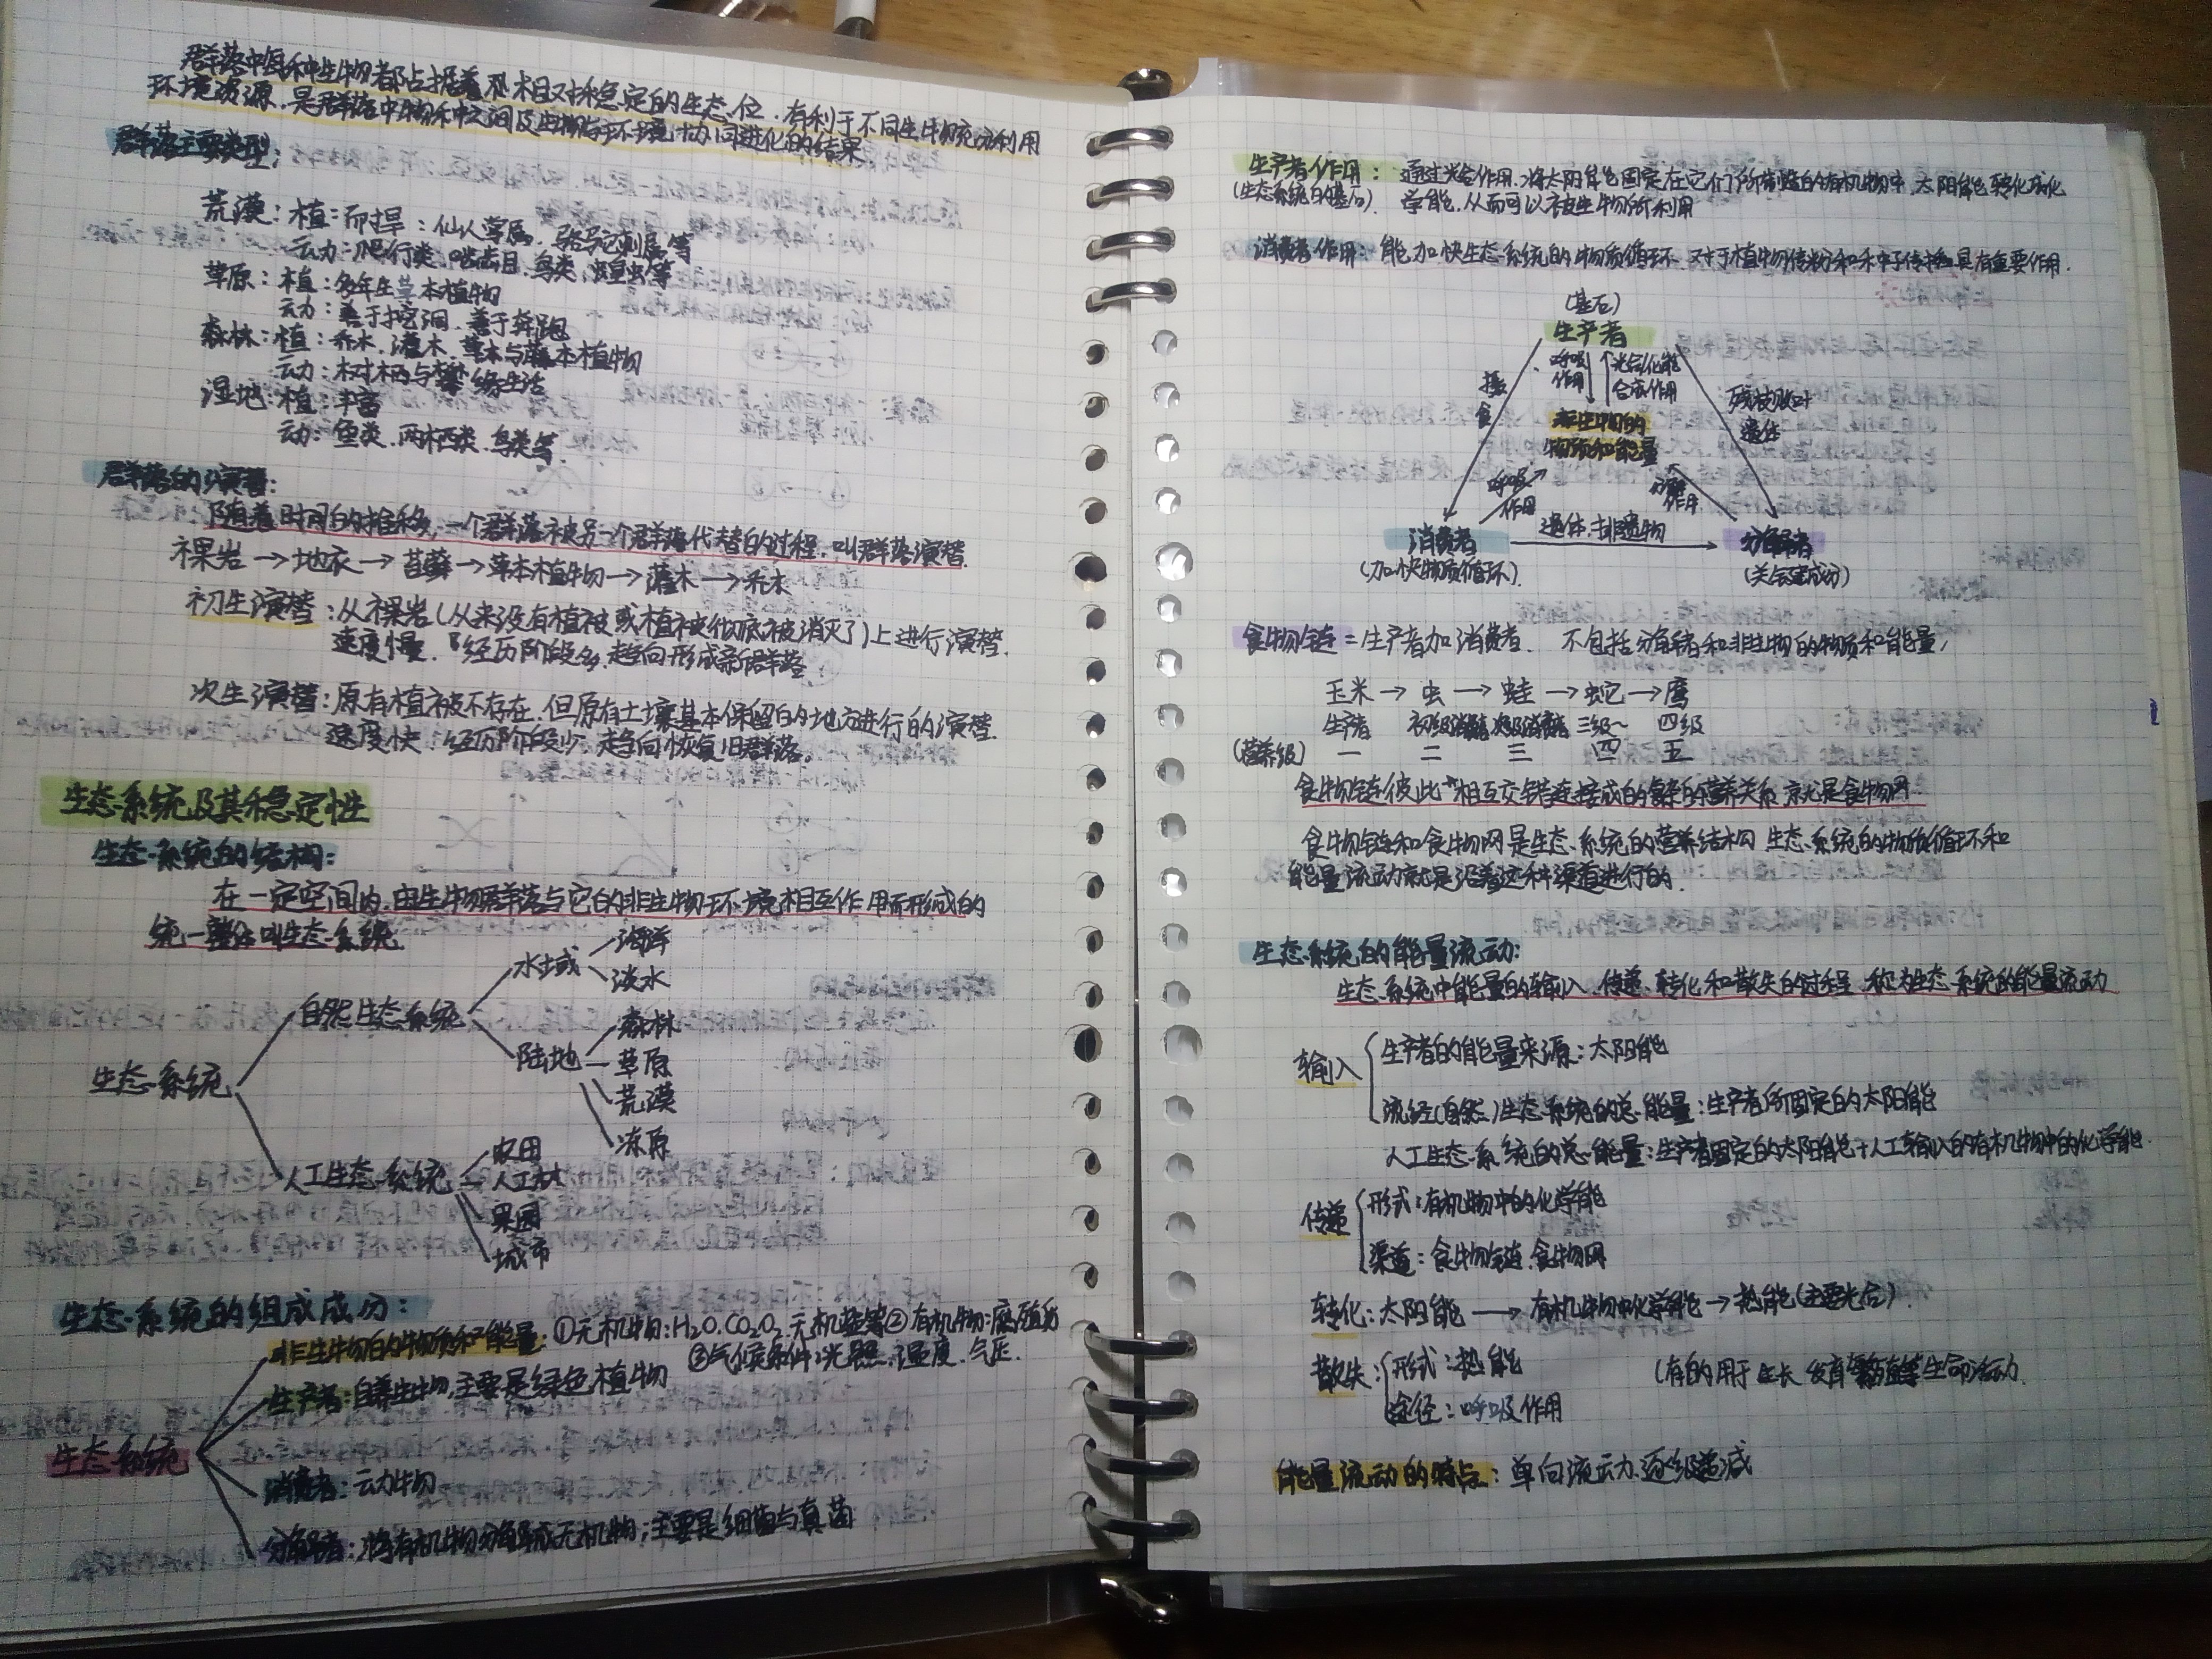 群落中每种生物都占据着相对稳定的生态位,有利于不同生物充分利用
环境资源,是群落中物种之间及生物与环境协同进化的结果
群落主要类型:
荒漠:植:耐旱:仙人掌属、骆驼刺属等
动:爬行类、啮齿目、鸟类、蝗虫等
草原:植:多年生草本植物
动:善于挖洞、善于奔跑
森林:植:乔木、灌木、草本与藤本植物
动:树栖与攀缘生活
湿地:植:丰富
动:鱼类、两栖类、鸟类等
群落的演替:
随着时间的推移,一个群落被另一个群落代替的过程,叫群落演替.
裸岩→地衣→苔藓→草本植物→灌木→乔木
初生演替:从裸岩(从来没有植被或植被彻底被消灭了)上进行演替.
速度慢.经历阶段多,趋向形成新群落
次生演替:原有植被不存在,但原有土壤基本保留的地方进行的演替.
速度快.经历阶段少,趋向恢复旧群落。
生态系统及其稳定性
生态系统的结构:
在一定空间内,由生物群落与它的非生物环境相互作用而形成的
统一整体叫生态系统
生态系统
自然生态系统
水域
海洋
淡水
陆地
森林
草原
荒漠
冻原
人工生态系统
农田
人工林
果园
城市
生态系统的组成成分:
生态系统
非生物的物质和能量:①无机物:H2O.CO2O2.无机盐等②有机物:腐殖质
③气候条件:光照、温度、气压.
生产者:自养生物,主要是绿色植物
消费者:动物
分解者:将有机物分解成无机物;主要是细菌与真菌
生产者作用:通过光合作用,将太阳能固定在它们所制造的有机物中.太阳能转化成化
(生态系统的基石).学能,从而可以被生物所利用
消费者作用:能加快生态系统的物质循环.对于植物传粉和种子传播具有重要作用.
(基石)
生产者
摄食
呼吸作用
光合化能合成作用
残枝败叶遗体
非生物的
物质和能量
呼吸作用
分解作用
消费者
遗体.排遗物
分解者
(加快物质循环).
(关键成分)
食物链=生产者加消费者.不包括分解者和非生物的物质和能量,
玉米→虫→蛙→蛇→鹰
生产者 初级消费者 次级消费者 三级~ 四级
(营养级) 一 二 三 四 五
食物链彼此相互交错连接成的复杂的营养关系就是食物网.
食物链和食物网是生态系统的营养结构 生态系统的物质循环和
能量流动就是沿着这种渠道进行的.
生态系统的能量流动:
生态系统中能量的输入、传递、转化和散失的过程,称为生态系统的能量流动
输入
生产者的能量来源:太阳能
流经(自然)生态系统的总能量:生产者所固定的太阳能
人工生态系统的总能量:生产者固定的太阳能+人工输入的有机物中的化学能.
传递
形式:有机物中的化学能
渠道:食物链.食物网
转化:太阳能→有机物中化学能→热能(主要光合).
散失:
形式:热能 (有的用于生长 发育繁殖等生命活动.
途径:呼吸作用
能量流动的特点:单向流动、逐级递减